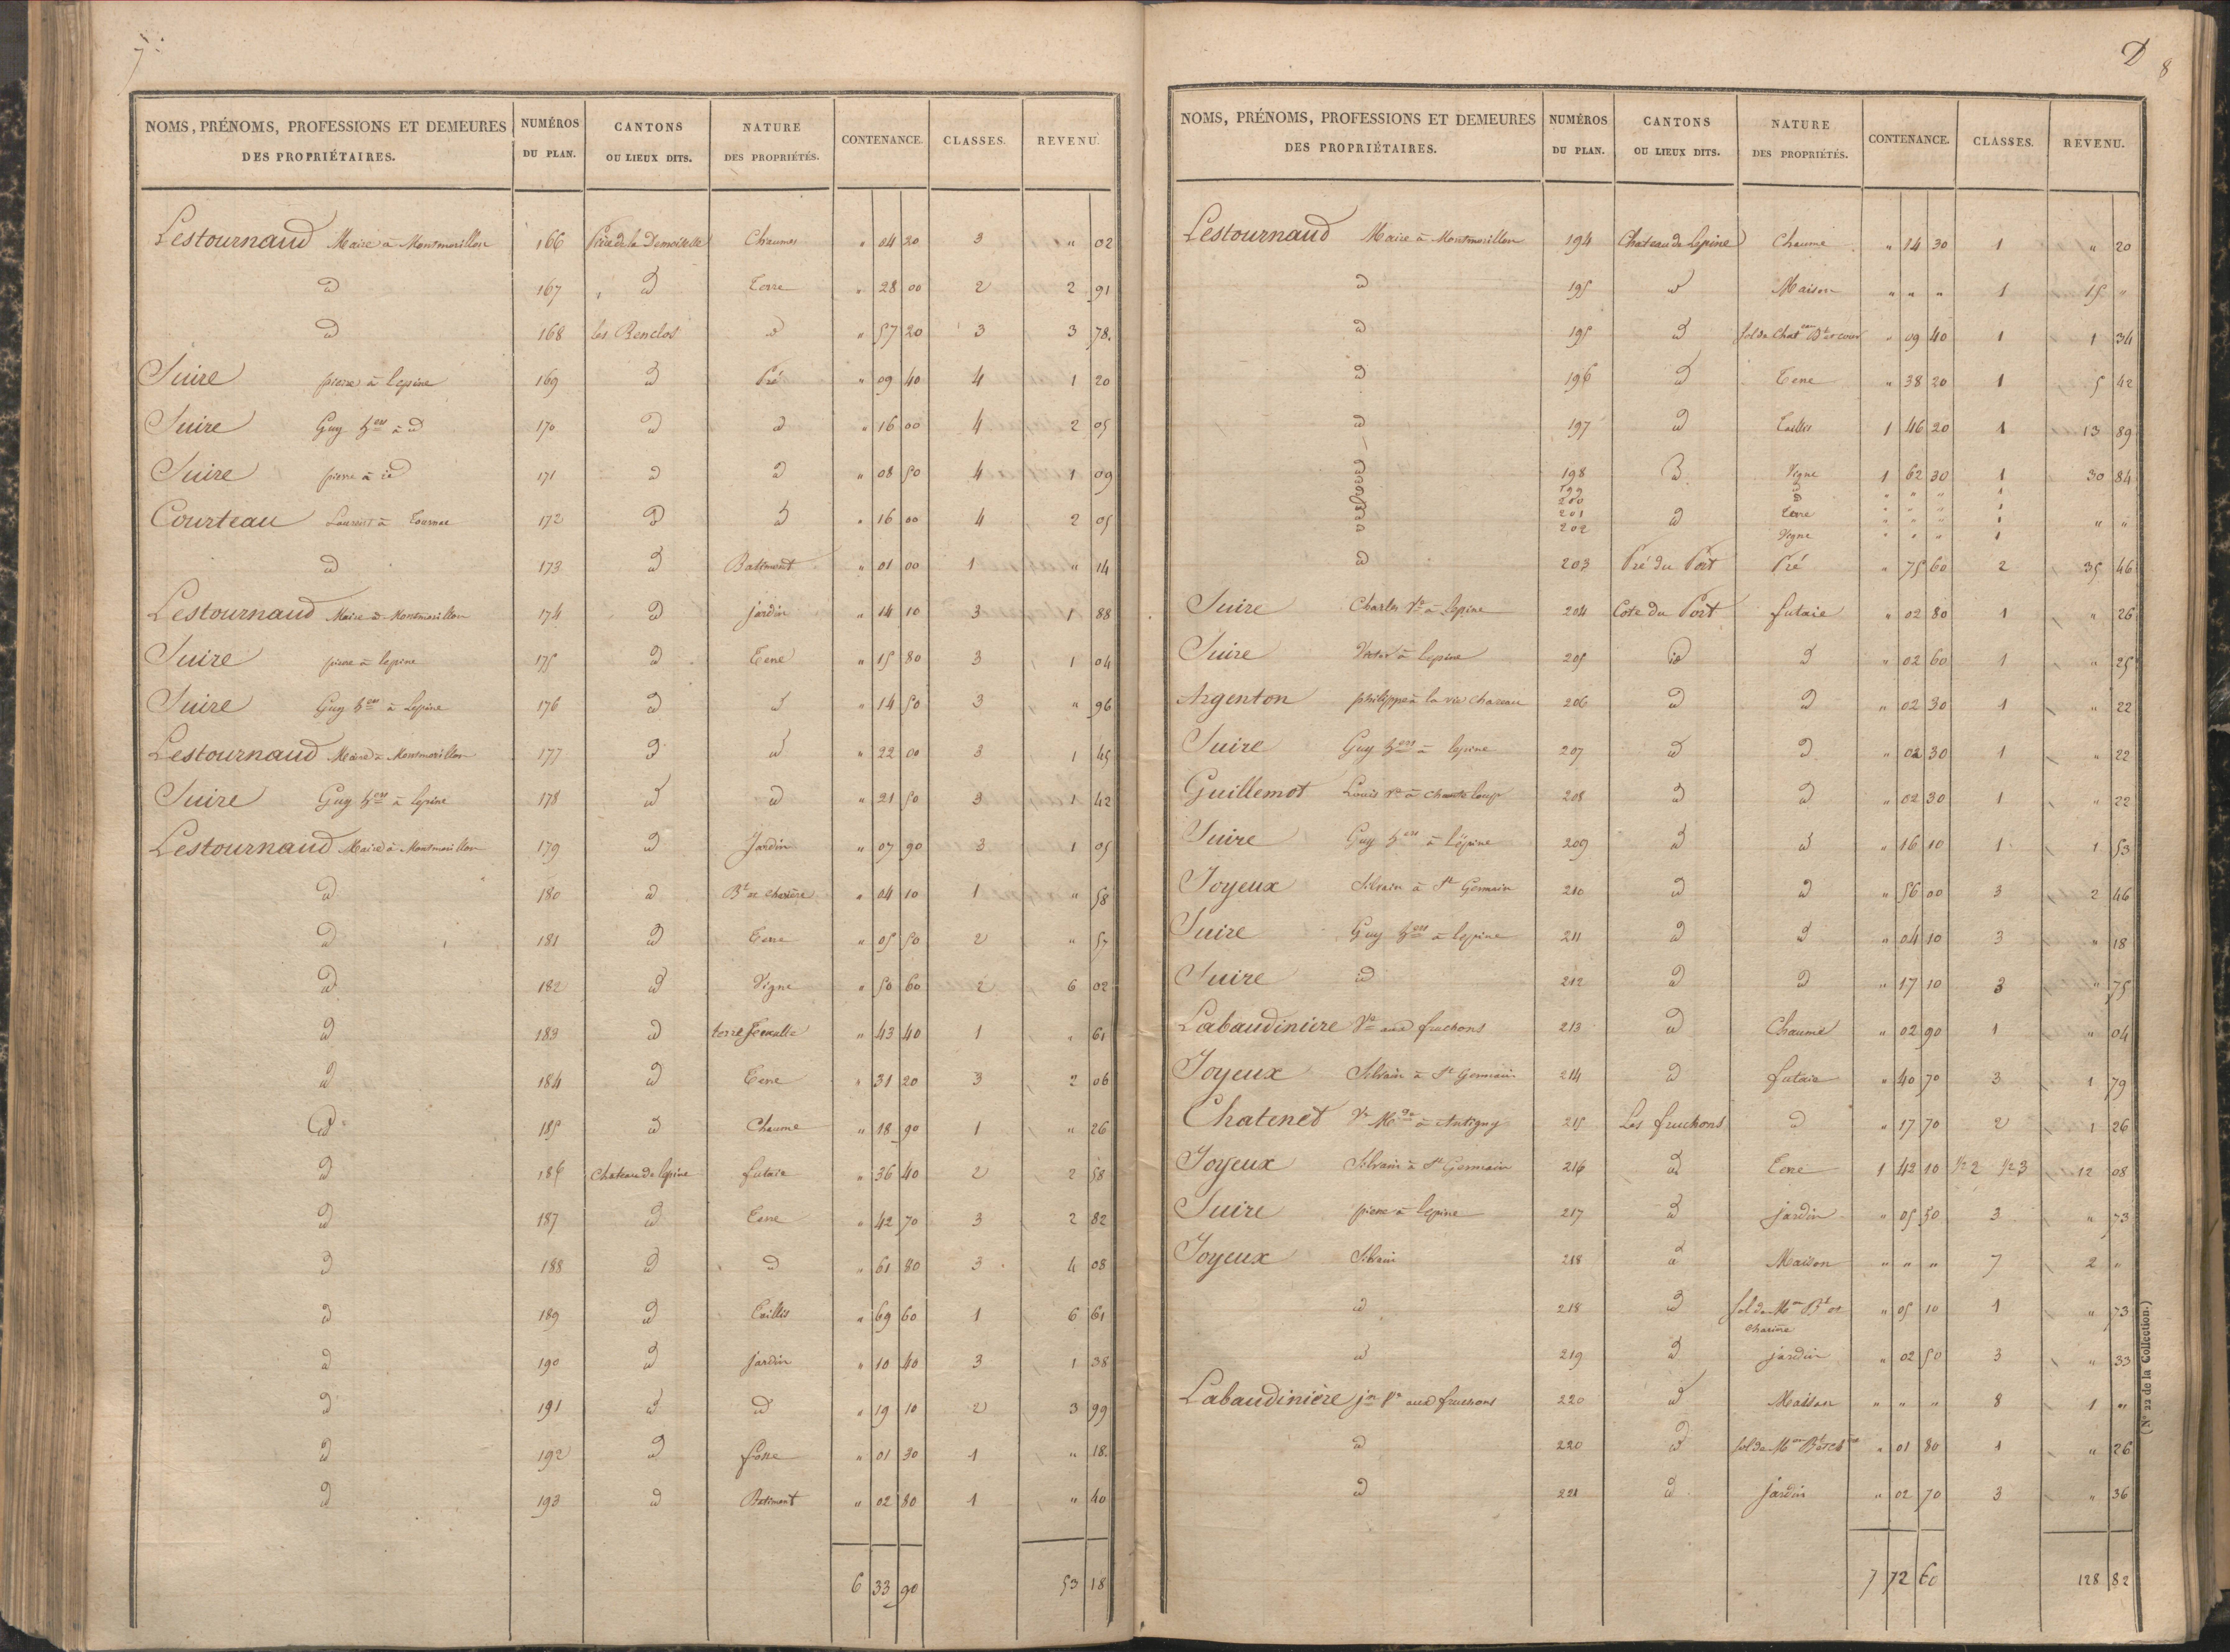 7
NOMS, PRÉNOMS, PROFESSIONS ET DEMEURES DES PROPRIÉTAIRES. NUMÉROS DU PLAN. CANTONS OU LIEUX DITS. NATURE DES PROPRIÉTÉS. CONTENANCE. CLASSES. REVENU.
Lestournaud Maire à Montmorillon 166 de la Demoiselle Chaumes " 04 20 3 " 02
id 167 id Terre " 28 00 2 2 91
id 168 les Renclos id " 57 20 3 3 78
Suire pierre à lepine 169 id Pré " 09 40 4 1 20
Suire Guy hers à id 170 id id " 16 00 4 2 05
Suire pierre à id 171 id id " 08 50 4 1 09
Courteau Laurent à Tournac 172 id id " 16 00 4 2 05
id 173 id Batiment " 01 00 1 " 14
Lestournaud Maire à Montmorillon 174 id jardin " 14 10 3 1 88
Suire pierre à lepine 175 id Terre " 15 80 3 1 04
Suire Guy hers à Lepine 176 id id " 14 50 3 " 96
Lestournaud Maire à Montmorillon 177 id id " 22 00 3 1 45
Suire Guy hers à lepine 178 id id " 21 50 3 1 42
Lestournaud Maire à Montmorillon 179 id Jardin " 07 90 3 1 05
id 180 id Bt et charière " 04 10 1 " 58
id 181 id Terre " 05 50 2 " 57
id 182 id Vigne " 50 60 2 6 02
id 183 id terre " 43 40 1 " 61
id 184 id Terre " 31 20 3 2 06
id 185 id Chaume " 18 90 1 " 26
id 186 Chateau de lepine futaie " 36 40 2 2 58
id 187 id Terre " 42 70 3 2 82
id 188 id id " 61 80 3 4 08
id 189 id Taillis " 69 60 1 6 61
id 190 id jardin " 10 40 3 1 38
id 191 id id " 19 10 2 3 99
id 192 id fosse " 01 30 1 " 18
id 193 id Batiment " 02 80 1 " 40
6 33 90 53 18
D 8
NOMS, PRÉNOMS, PROFESSIONS ET DEMEURES DES PROPRIÉTAIRES. NUMÉROS DU PLAN. CANTONS OU LIEUX DITS. NATURE DES PROPRIÉTÉS. CONTENANCE. CLASSES. REVENU.
Lestournaud Maire à Montmorillon 194 Chateau de Lepine Chaume " 14 30 1 " 20
id 195 id Maison " " " 1 15 "
id 195 id sol de Chateau Bt et cour " 09 40 1 1 34
id 196 id Terre " 38 20 1 5 42
id 197 id Taillis 1 46 20 1 13 89
id 198 id Vigne 1 62 30 1 30 84
id 199 id " " " 1
id 200 id " " " 1
id 201 id Terre " " " 1 " "
id 202 Vigne " " " 1
id 203 Pré du Port Pré " 75 60 2 35 46
Suire Charles Ve à lepine 204 Cote du Port futaie " 02 80 1 " 26
Suire Victor à lepine 205 id id " 02 60 1 " 25
Argenton philippe à la vie chazeau 206 id id " 02 30 1 " 22
Suire Guy hers à lepine 207 id id " 02 30 1 " 22
Guillemot Louis Ve à chante loup 208 id id " 02 30 1 " 22
Suire Guy hers à lépine 209 id id " 16 10 1 1 53
Joyeux Silvain à St Germain 210 id id " 56 00 3 2 46
Suire Guy hers à lepine 211 id id " 04 10 3 " 18
Suire id 212 id id " 17 10 3 " 75
Labaudinière Ve aux fruchons 213 id Chaume " 02 90 1 " 04
Joyeux Silvain à St Germain 214 id futaie " 40 70 3 1 79
Chatenet Ve Mde à Antigny 215 Les fruchons id " 17 70 2 1 26
Joyeux Silvain à St Germain 216 id Terre 1 42 10 1/2 2 1/2 3 12 08
Suire pierre à lepine 217 id jardin " 05 50 3 " 73
Joyeux Silvain 218 id Maison " " " 7 2 "
id 218 id sol de Mon Bt et charière " 05 10 1 " 73
id 219 id jardin " 02 50 3 " 33
Labaudinière jn Ve aux fruchons 220 id Maison " " " 8 1 "
id 220 id sol de Mon Bt et chre " 01 80 1 " 26
id 221 id Jardin " 02 70 3 " 36
7 72 60 128 82
(N° 22 de la Collection.)